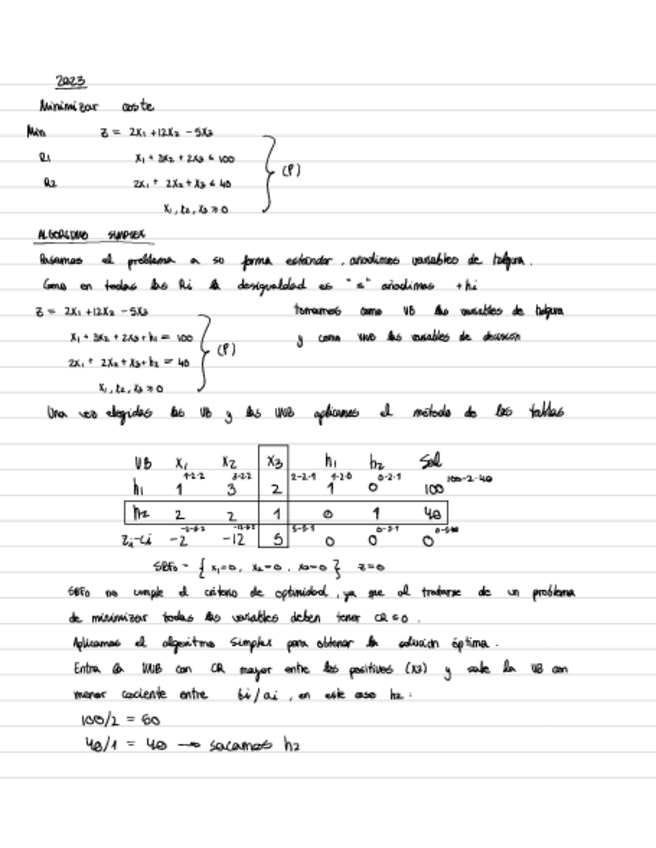 2023
Minimizar coste
Min Z = 2x₁ + 12x₂ - 5x₃
R1 x₁ + 3x₂ + 2x₃ ≤ 100
R2 2x₁ + 2x₂ + x₃ ≤ 40 (P)
x₁, x₂, x₃ ≥ 0
ALGORITMO SIMPLEX
Pasamos el problema a su forma estándar, añadimos variables de holgura.
Como en todas las Ri la desigualdad es "≤" añadimos +hi
Z = 2x₁ + 12x₂ - 5x₃ tomamos como VB las variables de holgura
x₁ + 3x₂ + 2x₃ + h₁ = 100 y como VNB las variables de decisión
2x₁ + 2x₂ + x₃ + h₂ = 40 (P)
x₁, x₂, x₃ ≥ 0
Una vez elegidas las VB y las VNB aplicamos el método de las tablas
VB x₁ x₂ x₃ h₁ h₂ Sol
1-2·2 3-2·2 2-2·1 1-2·0 0-2·1 100-2·40
h₁ 1 3 2 1 0 100
h₂ 2 2 1 0 1 40
zj-cj -2 -12 5 0 0 0
SBF₀ = { x₁=0, x₂=0, x₃=0 } z=0
SBF₀ no cumple el criterio de optimidad, ya que al tratarse de un problema
de minimizar todas las variables deben tener CR ≤ 0.
Aplicamos el algoritmo Simplex para obtener la solución óptima.
Entra la VNB con CR mayor entre los positivos (x₃) y sale la VB con
menor cociente entre bi/ai, en este caso h₂:
100/2 = 50
40/1 = 40 → sacamos h₂